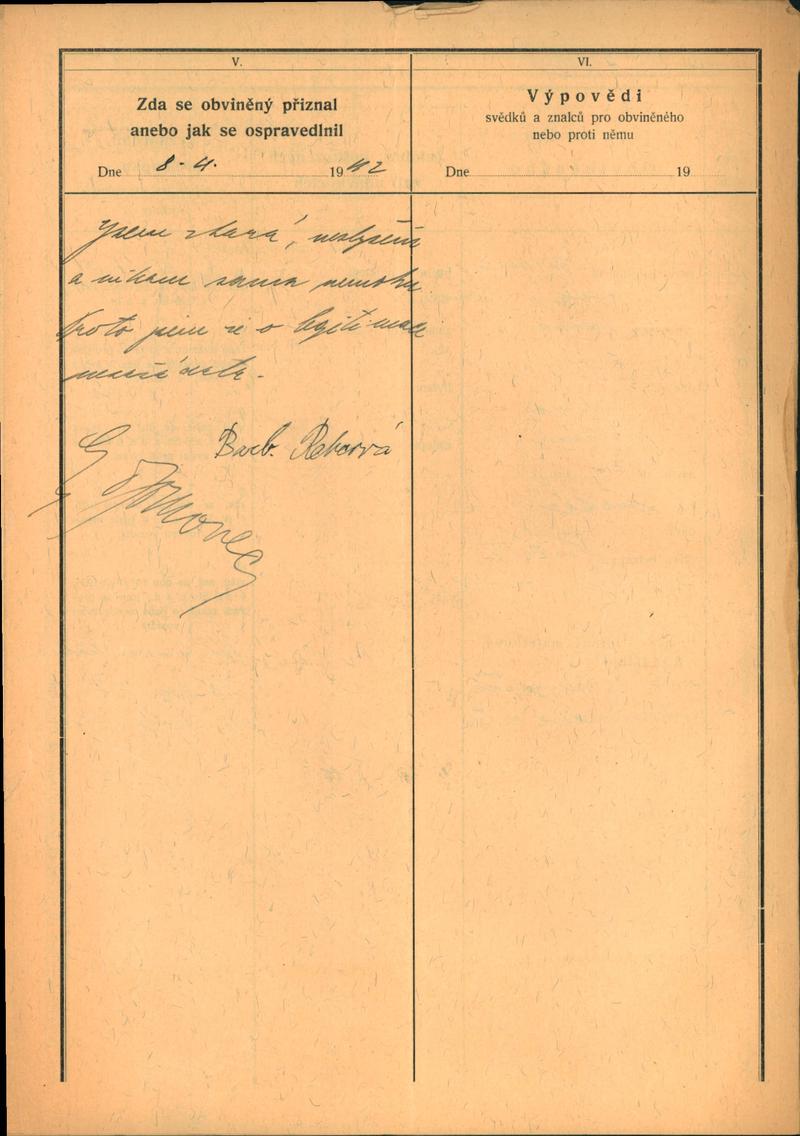 V.
Zda se obviněný přiznal
anebo jak se ospravedlnil
Dne 8. 4. 1942
Jsem stará, neslyším
a nikam sama nemohu
Proto jsem si o legitimaci
Barb.
VI.
Výpovědi
svědků a znalců pro obviněného
nebo proti němu
Dne 19